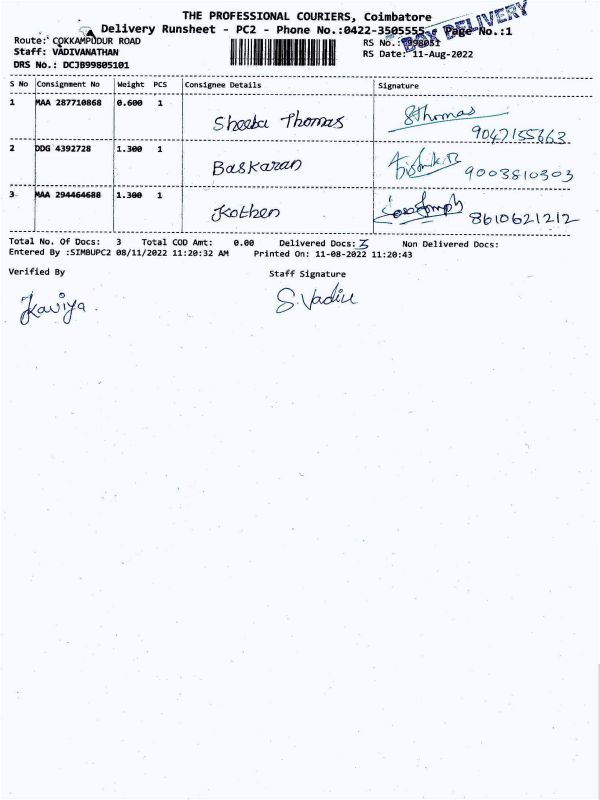 THE PROFESSIONAL COURIERS, Coimbatore
BOX DELIVERY
Delivery Runsheet - PC2 - Phone No.:0422-3505555 Page No.:1
Route: COKKAMPUDUR ROAD
RS No.:
Staff: VADIVANATHAN
RS Date: 11-Aug-2022
DRS No.: DCJB99805101
S No Consignment No Weight PCS Consignee Details Signature
1 MAA 287710868 0.600 1 Sheeba Thomas SThomas
9047155663
2 DDG 4392728 1.300 1 Baskaran 9003810303
3 MAA 294464688 1.300 1 Kothen 8610621212
Total No. Of Docs: 3 Total COD Amt: 0.00 Delivered Docs: 3 Non Delivered Docs:
Entered By :SIMBUPC2 08/11/2022 11:20:32 AM Printed On: 11-08-2022 11:20:43
Verified By Staff Signature
Kaviya. S.Vadiu